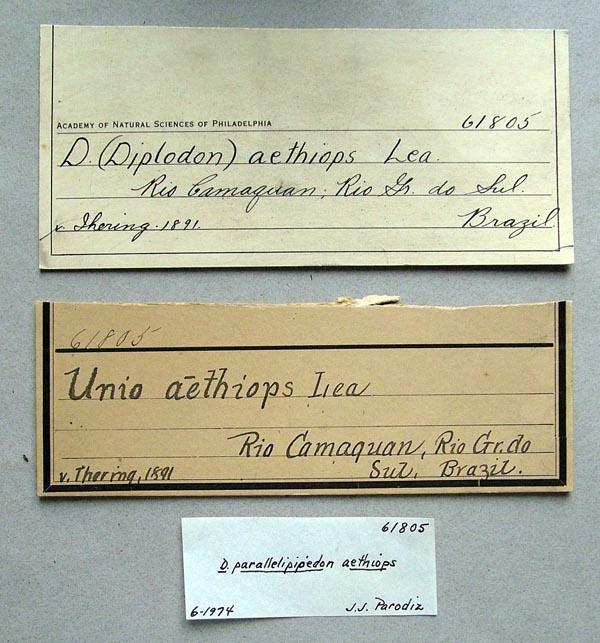 ACADEMY OF NATURAL SCIENCES OF PHILADELPHIA 61805
D. (Diplodon) aethiops Lea.
Rio Camaquan, Rio Gr. do Sul.
v. Ihering. 1891. Brazil.
61805
Unio aethiops Lea
Rio Camaquan, Rio Gr. do
v. Ihering, 1891 Sul, Brazil.
61805
D. parallelipipedon aethiops
6-1974 J.J. Parodiz